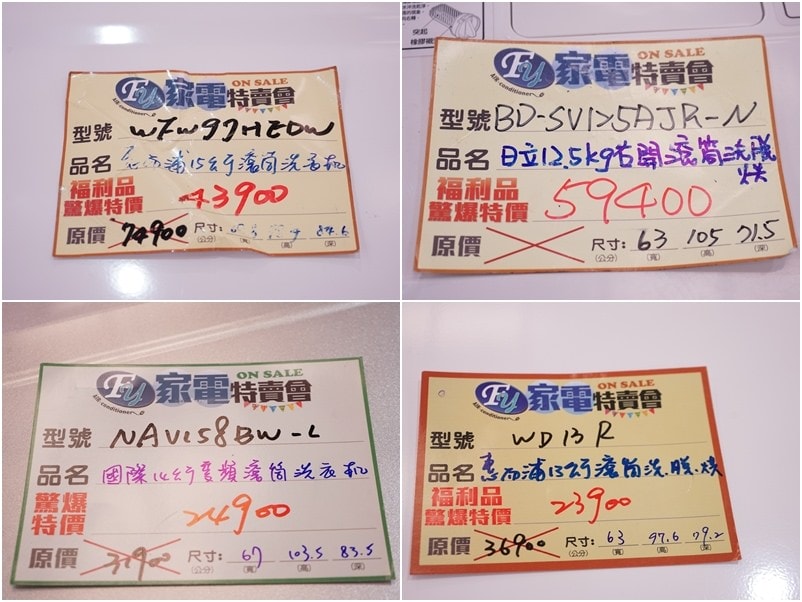 Fy 家電特賣會 ON SALE
Air-conditioner
型號 WFW97HEDW
品名 惠而浦15公斤滾筒洗衣機
福利品
驚爆特價 43900
原價 74900 尺寸:
(公分) (寬) (高) (深)
突起
Fy 家電特賣會 ON SALE
Air-conditioner
型號 BD-SV125AJR-N
品名 日立12.5kg右開滾筒洗脫烘
福利品
驚爆特價 59400
原價 尺寸: 63 105 71.5
(公分) (寬) (高) (深)
Fy 家電特賣會 ON SALE
Air-conditioner
型號 NAV158BW-L
品名 國際14公斤變頻滾筒洗衣機
驚爆
特價 24900
原價 31900 尺寸: 67 103.5 83.5
(公分) (寬) (高) (深)
Fy 家電特賣會 ON SALE
Air-conditioner
型號 WD13R
品名 惠而浦13公斤滾筒洗.脫.烘
福利品
驚爆特價 23900
原價 36900 尺寸: 63 97.6 79.2
(公分) (寬) (高) (深)